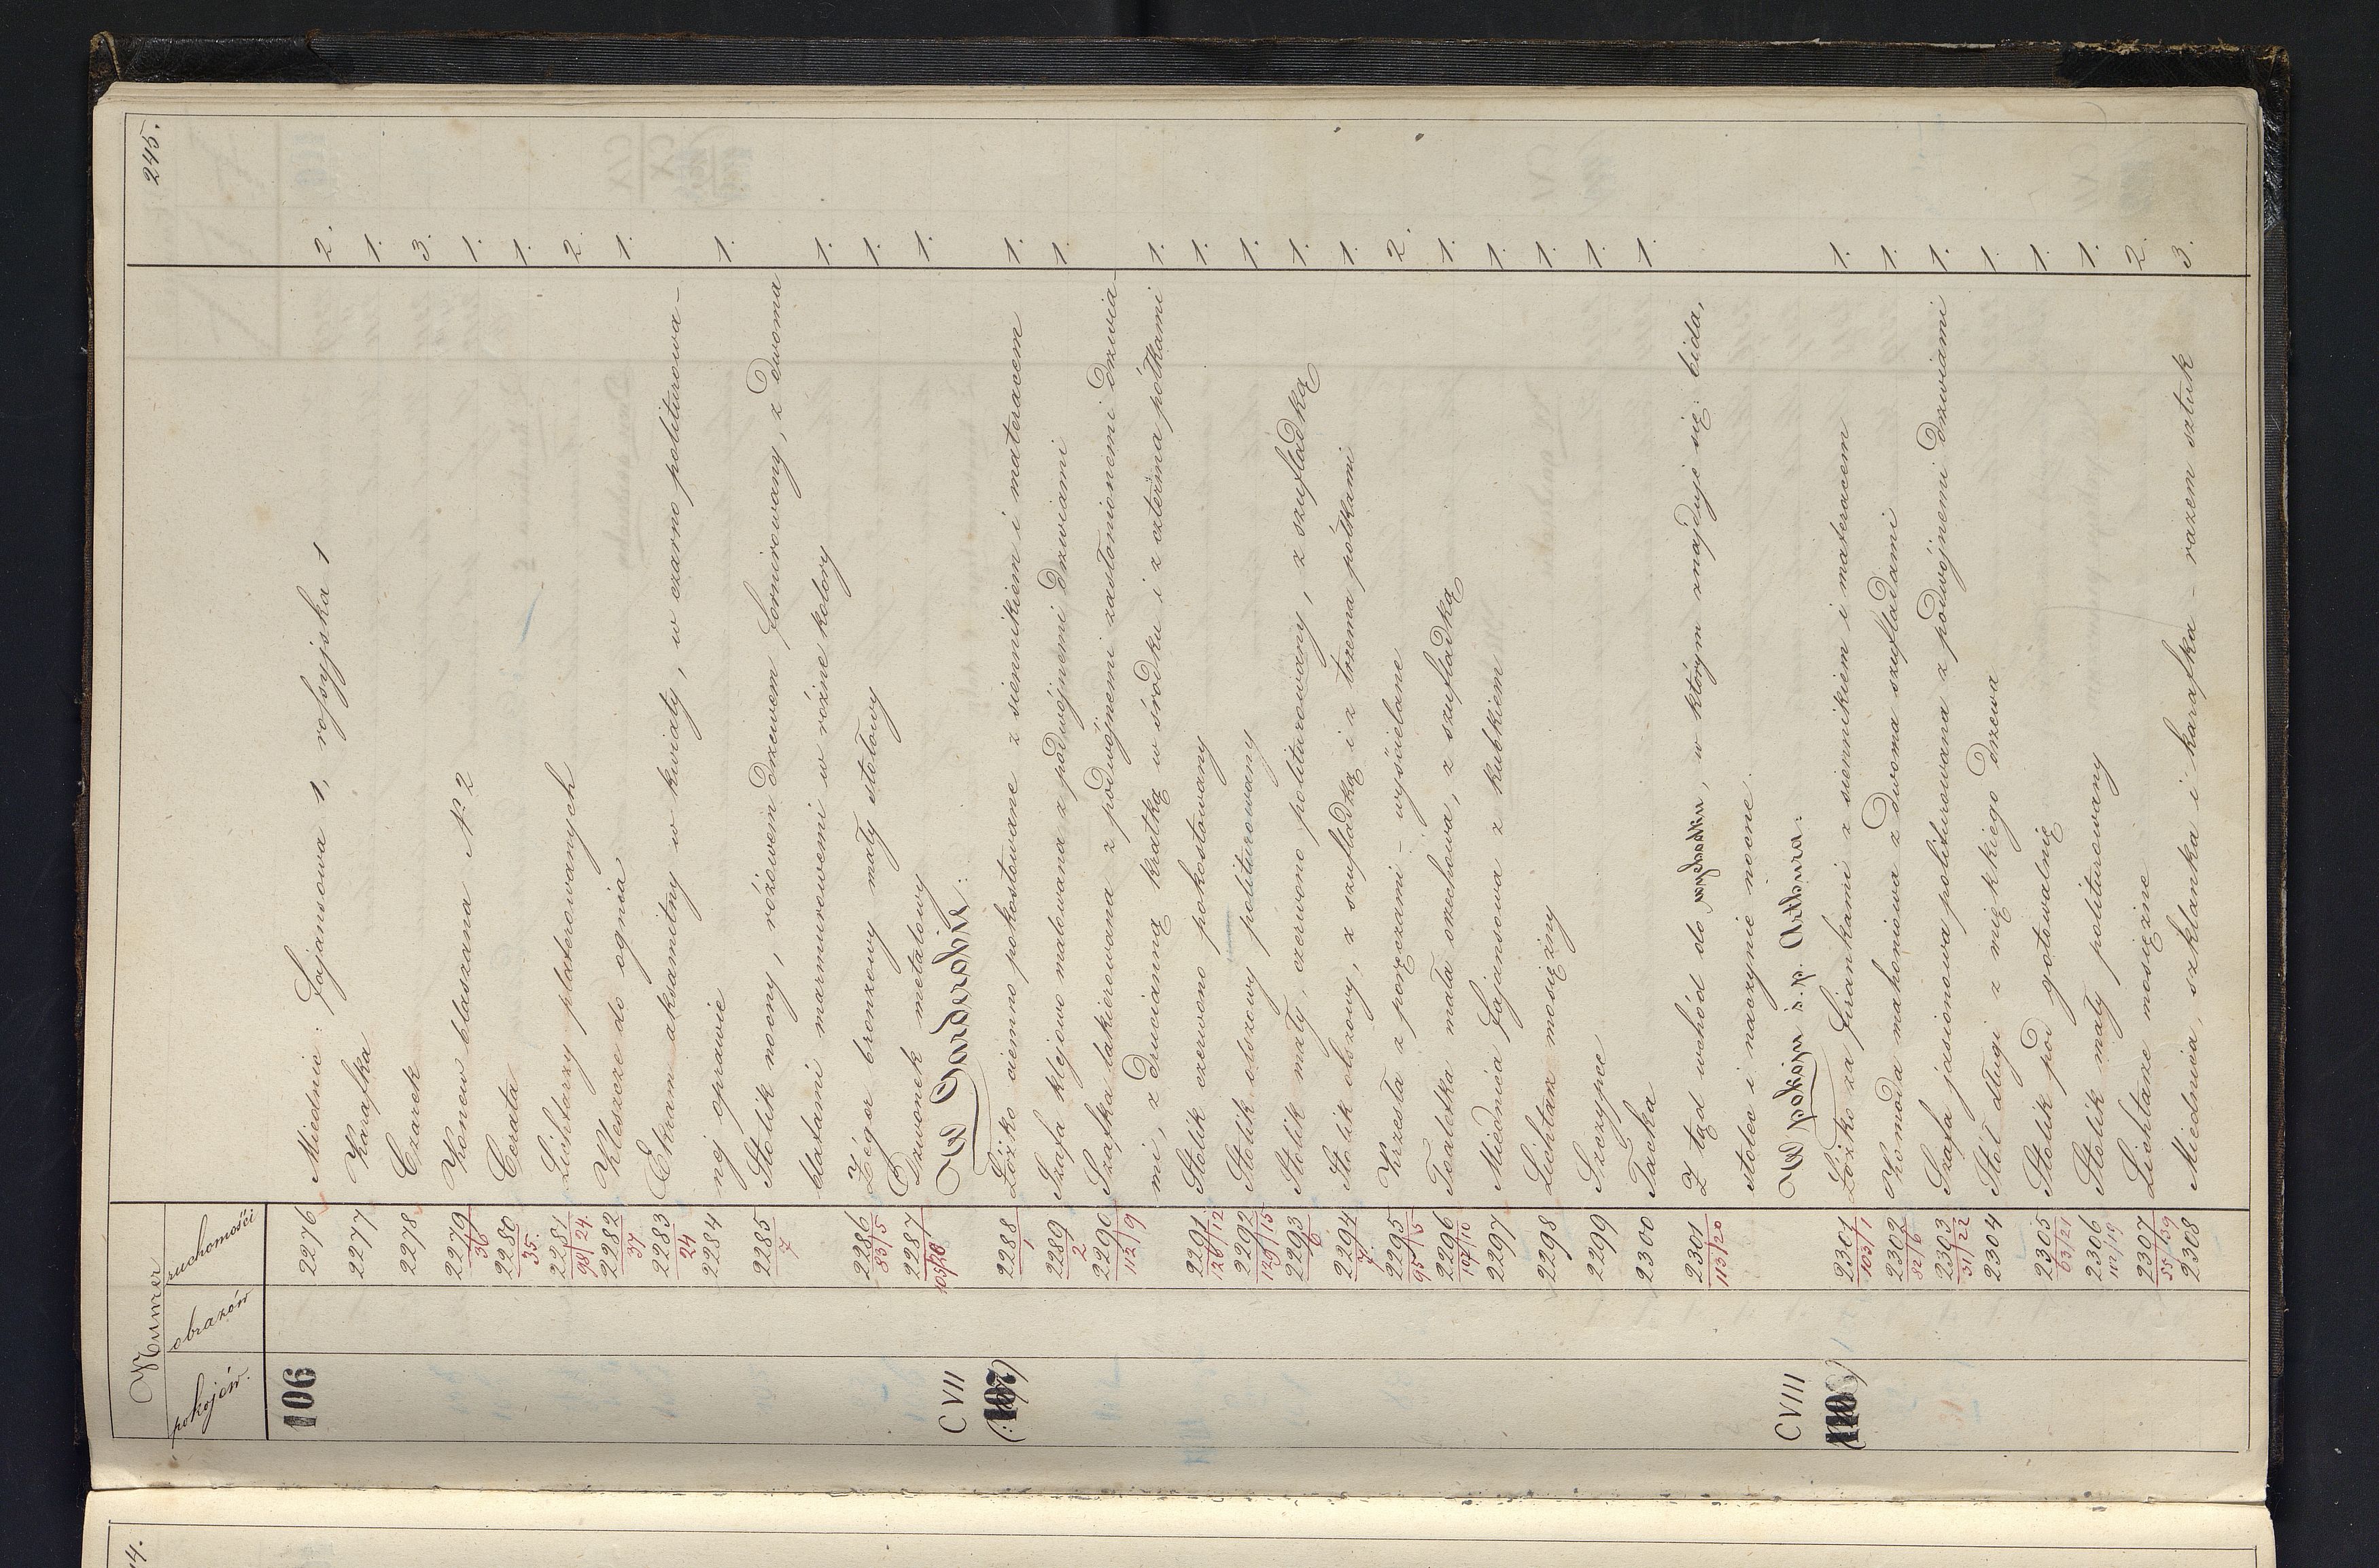 245.
Numer
pokojów. obrazów ruchomości
106 2276 Miednic: fajansowa 1, rossyjska 1 2.
2277 Karafka 1.
2278 Czarek 3.
2279 Konew blaszana No 2 1.
36
2280 Cerata 1.
35.
2281 Lichtarzy platerowanych 2.
98/24.
2282 Kleszcze do ognia 1.
37
2283 Ekram aksamitny w kwiaty, w czarno politurowa-
24
2284 nej oprawie 1.
2285 Stolik nocny, różowem drzewem fornirowany, z dwoma
7
blatami marmurowemi w różne kolory 1.
2286 Zégar bronzowy mały stołowy 1.
83/5
2287 Dzwonek metalowy 1.
103/26
CVII W Garderobie:
(:107:) 2288 Łóżko ciemno pokostowane z siennikiem i materacem 1.
1
2289 Szafa klejowo malowana z podwójnemi drzwiami 1.
2
2290 Szafka lakierowana z podwójnemi zasłonionemi drzwia-
112/9 mi, z drucianną kratką w środku i z czterma półkami 1.
2291. Stolik czerwono pokostowany 1.
126/12
2292 Stolik olszowy politurowany 1.
129/15
2293 Stolik mały, czerwono politurowany, z szufladką 1.
6
2294 Stolik olszowy, z szufladką i z trzema półkami 1.
7.
2295 Krzesła z poręczami - wyściełane 2.
95/5
2296 Toaletka mała orzechowa, z szufladką 1.
107/10
2297 Miednica fajansowa z kubkiem 1.
2298 Lichtarz mosiężny 1.
2299 Szczypce 1.
2300 Tacka 1.
2301 Z tąd wchód do wychodku, w którym znajduje się: bida,
113/20
stolec i naczynie nocne.
CVIII W pokoju ś.p. Arthura:
2301 Łóżko za firankami z siennikiem i materacem 1.
103/1
2302 Komoda mahoniowa z dwoma szufladami 1.
82/6
2303 Szafa jesionowa politurowana z podwójnemi drzwiami 1.
31/22
2304 Stół długi z miękkiego drzewa 1.
2305 Stolik pod gotowalnię 1.
63/21
2306 Stolik mały politurowany 1.
112/19
2307 Lichtarze mosiężne 2.
55/39
2308 Miednica, szklanka i karafka - razem sztuk 3.